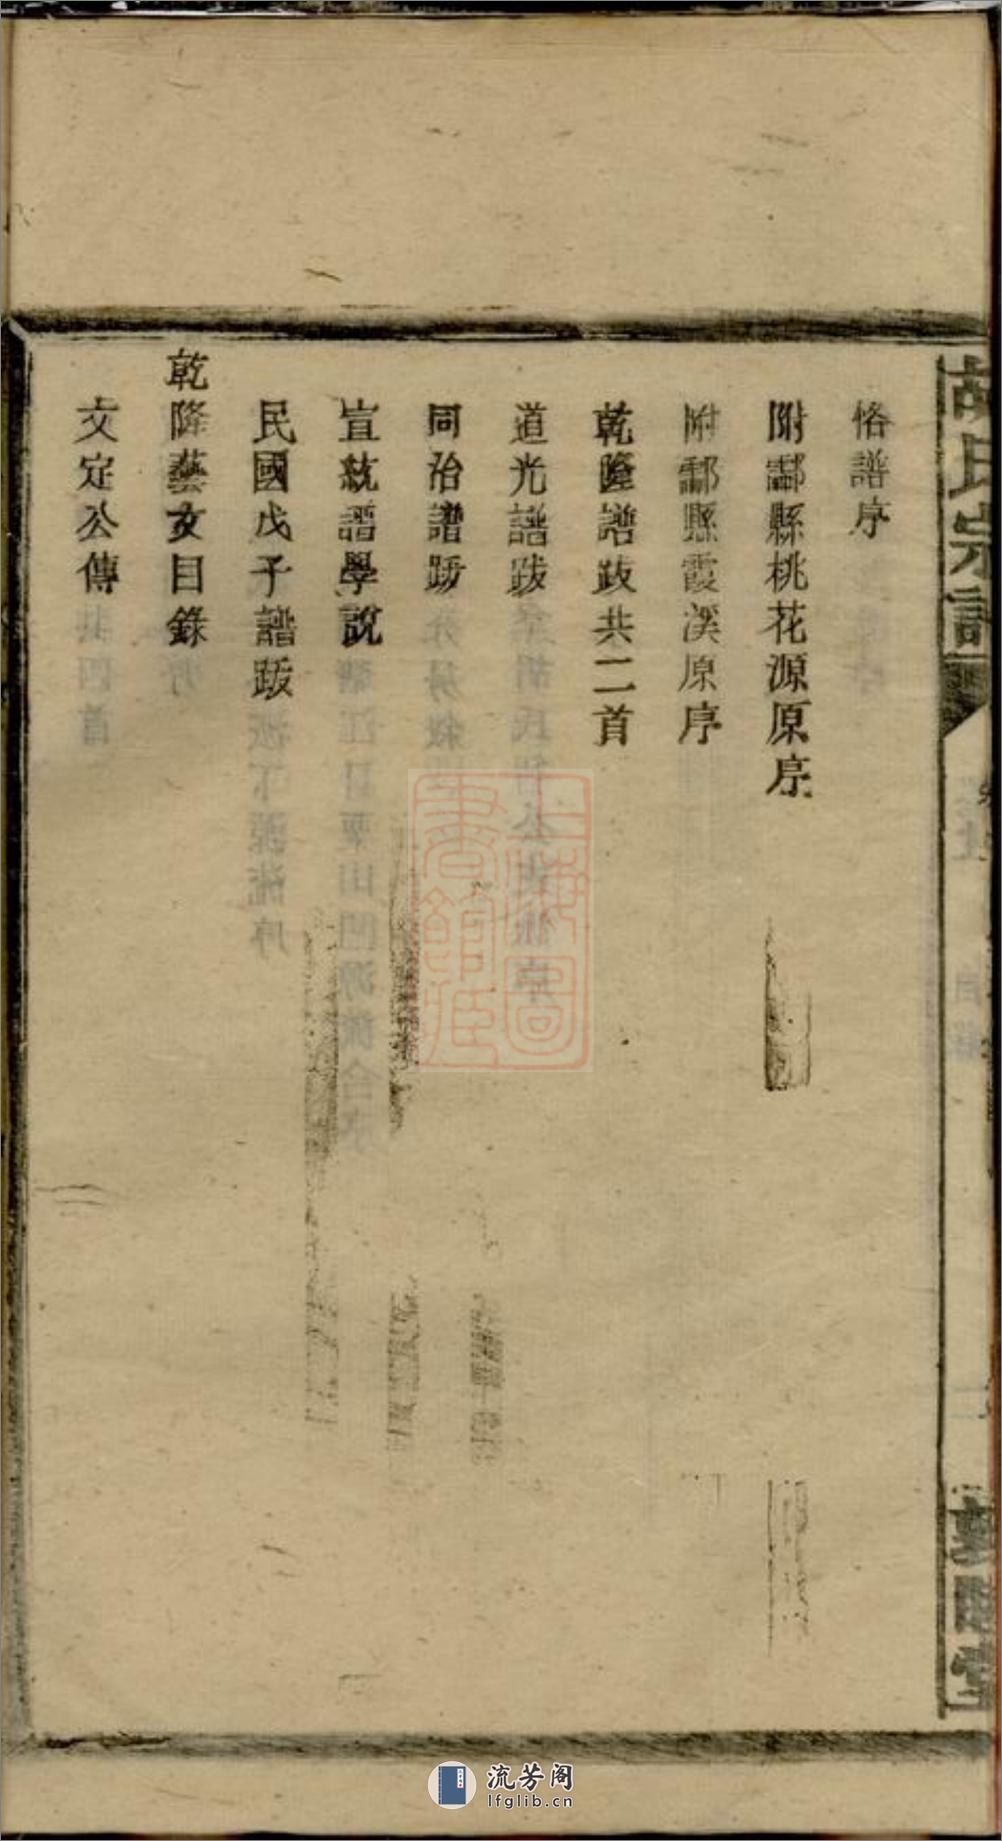 恪譜序
附酃縣桃花源原序
附酃縣霞溪原序
乾隆譜跋共二首
道光譜跋
同治譜跋
宣統譜學說
民國戊子譜跋
乾隆藝文目錄
文定公傳
胡氏宗譜
上海圖書館藏
流芳阁
lfglib.cn